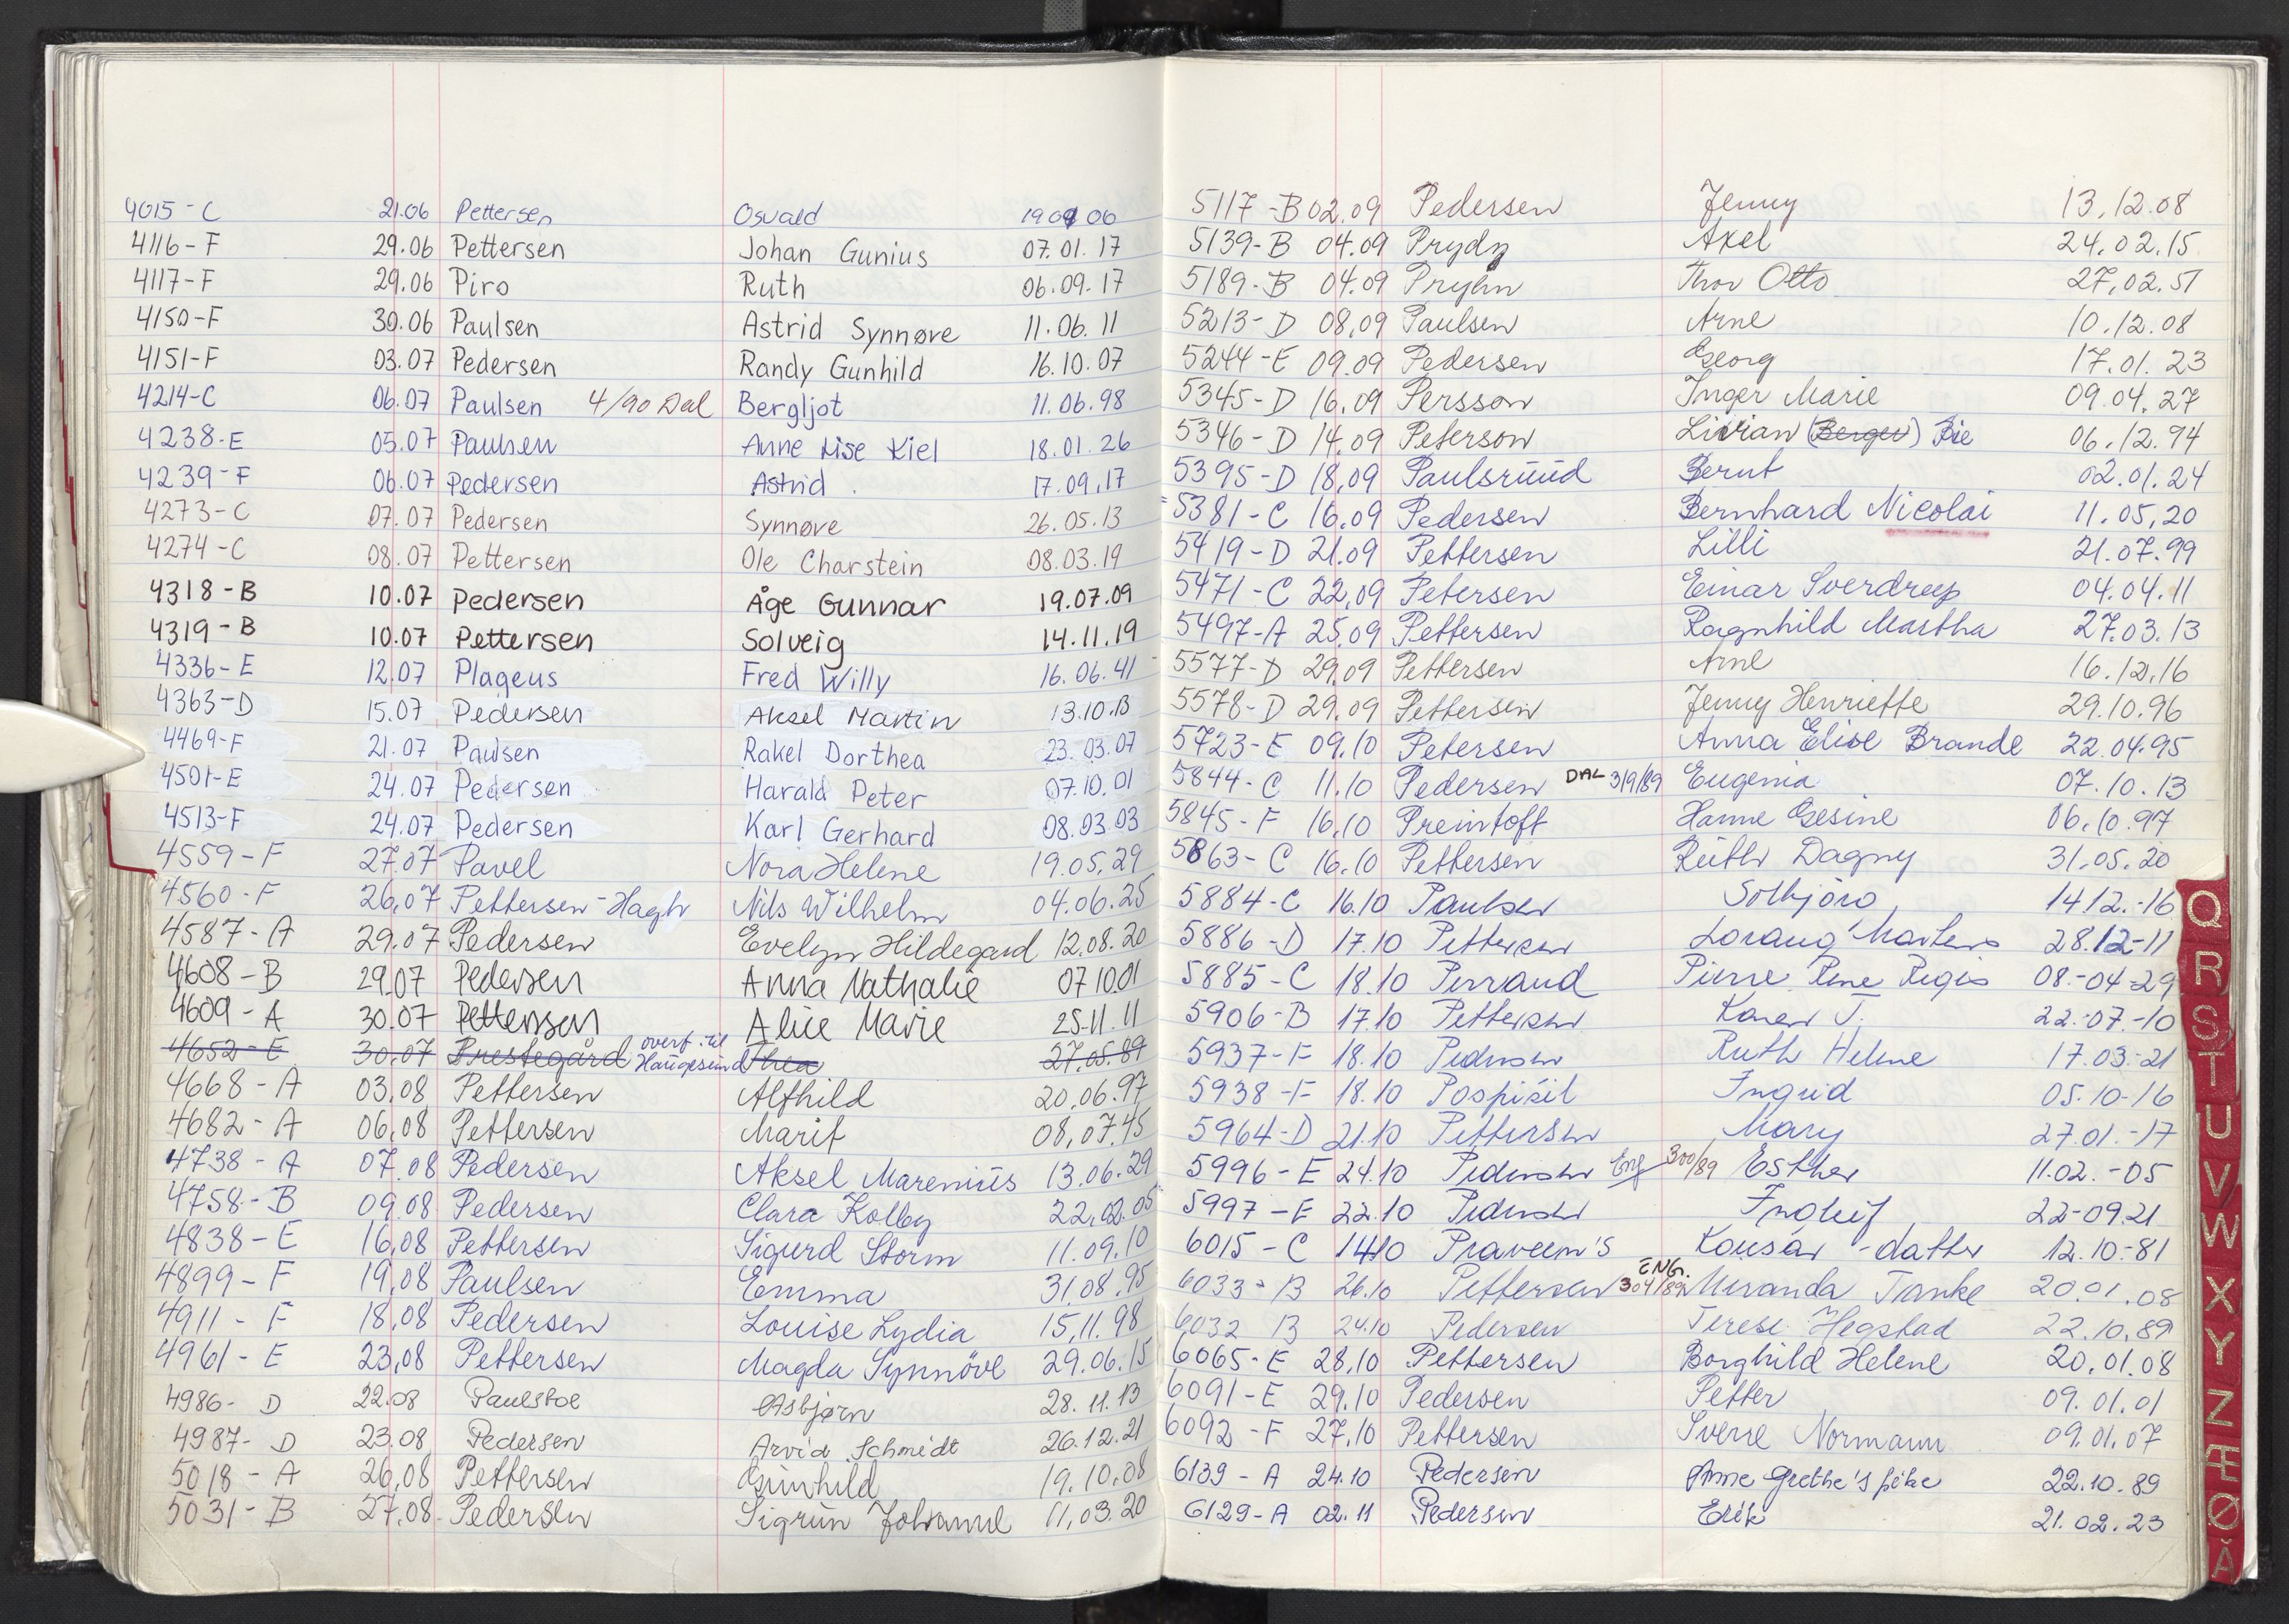 4015-C 21.06 Pettersen Osvald 190406
4116-F 29.06 Pettersen Johan Gunius 07.01.17
4117-F 29.06 Piro Ruth 06.09.17
4150-F 30.06 Paulsen Astrid Synnøve 11.06.11
4151-F 03.07 Pedersen Randy Gunhild 16.10.07
4214-C 06.07 Paulsen 4/90 Dal Bergljot 11.06.98
4238-E 05.07 Paulsen Anne Lise Kiel 18.01.26
4239-F 06.07 Pedersen Astrid 17.09.17
4273-C 07.07 Pedersen Synnøve 26.05.13
4274-C 08.07 Pettersen Ole Charstein 08.03.19
4318-B 10.07 Pedersen Åge Gunnar 19.07.09
4319-B 10.07 Pettersen Solveig 14.11.19
4336-E 12.07 Plageus Fred Willy 16.06.41
4363-D 15.07 Pedersen Aksel Martin 13.10.13
4469-F 21.07 Paulsen Rakel Dorthea 23.03.07
4501-E 24.07 Pedersen Harald Peter 07.10.01
4513-F 24.07 Pedersen Karl Gerhard 08.03.03
4559-F 27.07 Pavel Nora Helene 19.05.29
4560-F 26.07 Pettersen-Hagh Nils Wilhelm 04.06.25
4587-A 29.07 Pedersen Evelyn Hildegard 12.08.20
4608-B 29.07 Pedersen Anna Nathalie 07 10.01
4609-A 30.07 Pettersen Alice Marie 25.11.11
4652-E 30.07 Prestegård overf. til Haugesund Thea 27.05.89
4668-A 03.08 Pettersen Alfhild 20.06.97
4682-A 06.08 Pettersen Marit 08.07.45
4738-A 07.08 Pedersen Aksel Marenius 13.06.29
4758-B 09.08 Pedersen Clara Kolby 22.02.05
4838-E 16.08 Pettersen Sigurd Storm 11.09.10
4899-F 19.08 Paulsen Emma 31.08.95
4911-F 18.08 Pedersen Louise Lydia 15.11.98
4961-E 23.08 Pettersen Magda Synnöve 29.06.15
4986-D 22.08 Paulsboe Asbjørn 28.11.13
4987-D 23.08 Pedersen Arvid Schmidt 26.12.21
5018-A 26.08 Pettersen Gunhild 19.10.08
5031-B 27.08 Pedersen Sigrun Johanne 11.03.20
5117-B 02.09 Pedersen Jenny 13.12.08
5139-B 04.09 Prydz Axel 24.02.15
5189-B 04.09 Pryhn Thor Otto 27.02.51
5213-D 08.09 Paulsen Arne 10.12.08
5244-E 09.09 Pedersen Georg 17.01.23
5345-D 16.09 Persson Inger Marie 09.04.27
5346-D 14.09 Peterson Livian (Berger) Bie 06.12.94
5395-D 18.09 Paulsrud Bernt 02.01.24
5381-C 16.09 Pedersen Bernhard Nicolai 11.05.20
5419-D 21.09 Pettersen Lilli 21.07.99
5471-C 22.09 Petersen Einar Sverdrup 04.04.11
5497-A 25.09 Pettersen Ragnhild Martha 27.03.13
5577-D 29.09 Pettersen Arne 16.12.16
5578-D 29.09 Pettersen Jenny Henriette 29.10.96
5723-E 09.10 Petersen Anna Elise Brande 22.04.95
5844-C 11.10 Pedersen DAL 3/9/89 Eugenia 07.10.13
5845-F 16.10 Preintoft Hanne Gesine 06.10.97
5863-C 16.10 Pettersen Ruth Dagny 31.05.20
5884-C 16.10 Paulsen Solbjörg 14.12.-16
5886-D 17.10 Pettersen Lorang Martens 28.12-11
5885-C 18.10 Perraud Pierre Rene Regis 08.-04-29
5906-B 17.10 Pettersen Karen J. 22.-07.-10
5937-F 18.10 Pedersen Ruth Helene 17.03-21
5938-F 18.10 Pospisil Ingrid 05.10-16
5964-D 21.10 Pettersen Mary 27.01.-17
5996-E 24.10 Pedersen Eng 300/89 Esther 11.02.-05
5997-E 22.10 Pedersen Ingleif 22-09.21
6015-C 14.10 Praveen's Kousar -datter 12.10.-81
6033-B 26.10 Pettersen ENG. 304/89 Miranda Tranke 20.01.08
6032 B 24.10 Pedersen Terese Hegstad 22.10.89
6065-E 28.10 Pettersen Borghild Helene 20.01.08
6091-E 29.10 Pedersen Petter 09.01.01
6092-F 27.10 Pettersen Sverre Normann 09.01.07
6139-A 24.10 Pedersen Anne Grethe's pike 22.10.89
6129-A 02.11 Pedersen Erik 21.02.23
Q
R
S
T
U
V
W
X
Y
Z
Æ
Ø
Å